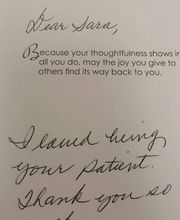 Dear Sara,
Because your thoughtfulness shows in
all you do, may the joy you give to
others find its way back to you.
I loved being
your patient.
Thank you so